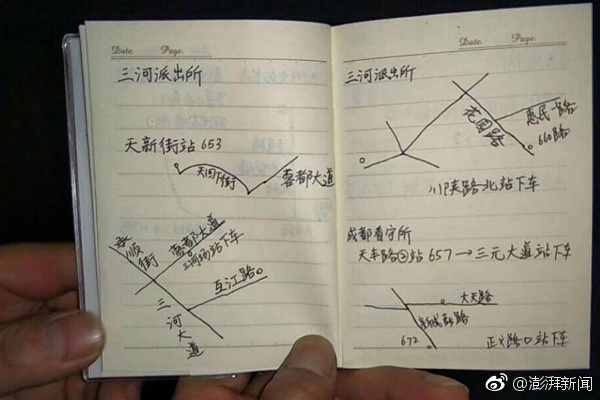 Date. Page.
三河派出所
天新街站 653
天回下街
蓉都大道
蓉都大道
三河场站下车
顺街
互江路
三河大道
Date. Page.
三河派出所
花园路
惠民一路
660路
川陕路北站下车
成都看守所
天丰路②站 657→三元大道站下车
大天路
路
672
正义路口站下车
@澎湃新闻